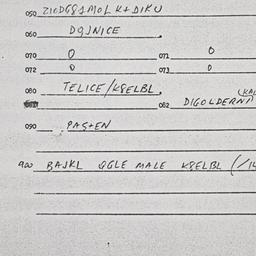 050 ZIODG81MOL K+DIKU
060 DQJNICE
070 0 071 0
072 0 073 0
080 TELICE/K8ELBL
082 DIGOLDERNI
090 PAS+EN
900 BAJKL QGLE MALE K8ELBL (/14